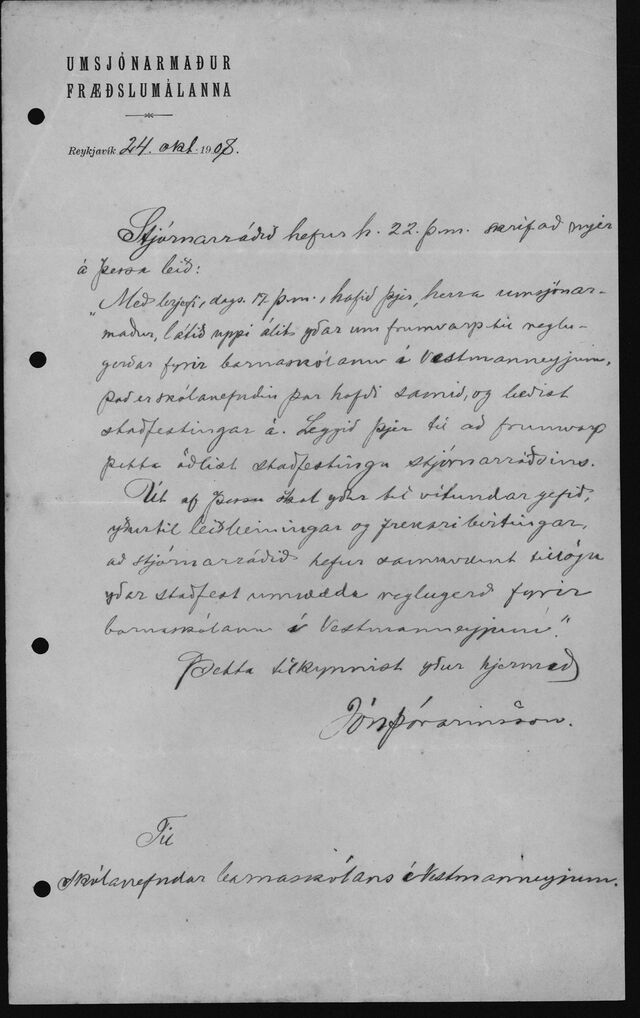 UMSJÓNARMAÐUR
FRÆÐSLUMÁLANNA
Reykjavík 24. okt. 1908.
Stjórnarráðið hefur h. 22. þ.m. skrifað mjer
á þessa leið:
"Með brjefi, dags. 17 þ.m., hafið þjer, herra umsjónar-
maður, látið uppi álit yðar um frumvarp til reglu-
gerðar fyrir barnaskólann í Vestmanneyjum,
það er skólanefndin þar hafði samið, og beðist
staðfestingar á. Leggið þjer til að frumvarp
þetta öðlist staðfestingu stjórnarráðsins.
Út af þessu skal yður til vitundar gefið,
yður til leiðbeiningar og frekari birtingar,
að stjórnarráðið hefur samkvæmt tillögu
yðar staðfest umrædda reglugerð fyrir
barnaskólann í Vestmanneyjum".
Þetta tilkynnist yður hjermeð
Jón Þórarinsson.
Til
skólanefndar barnaskólans í Vestmanneyjum.